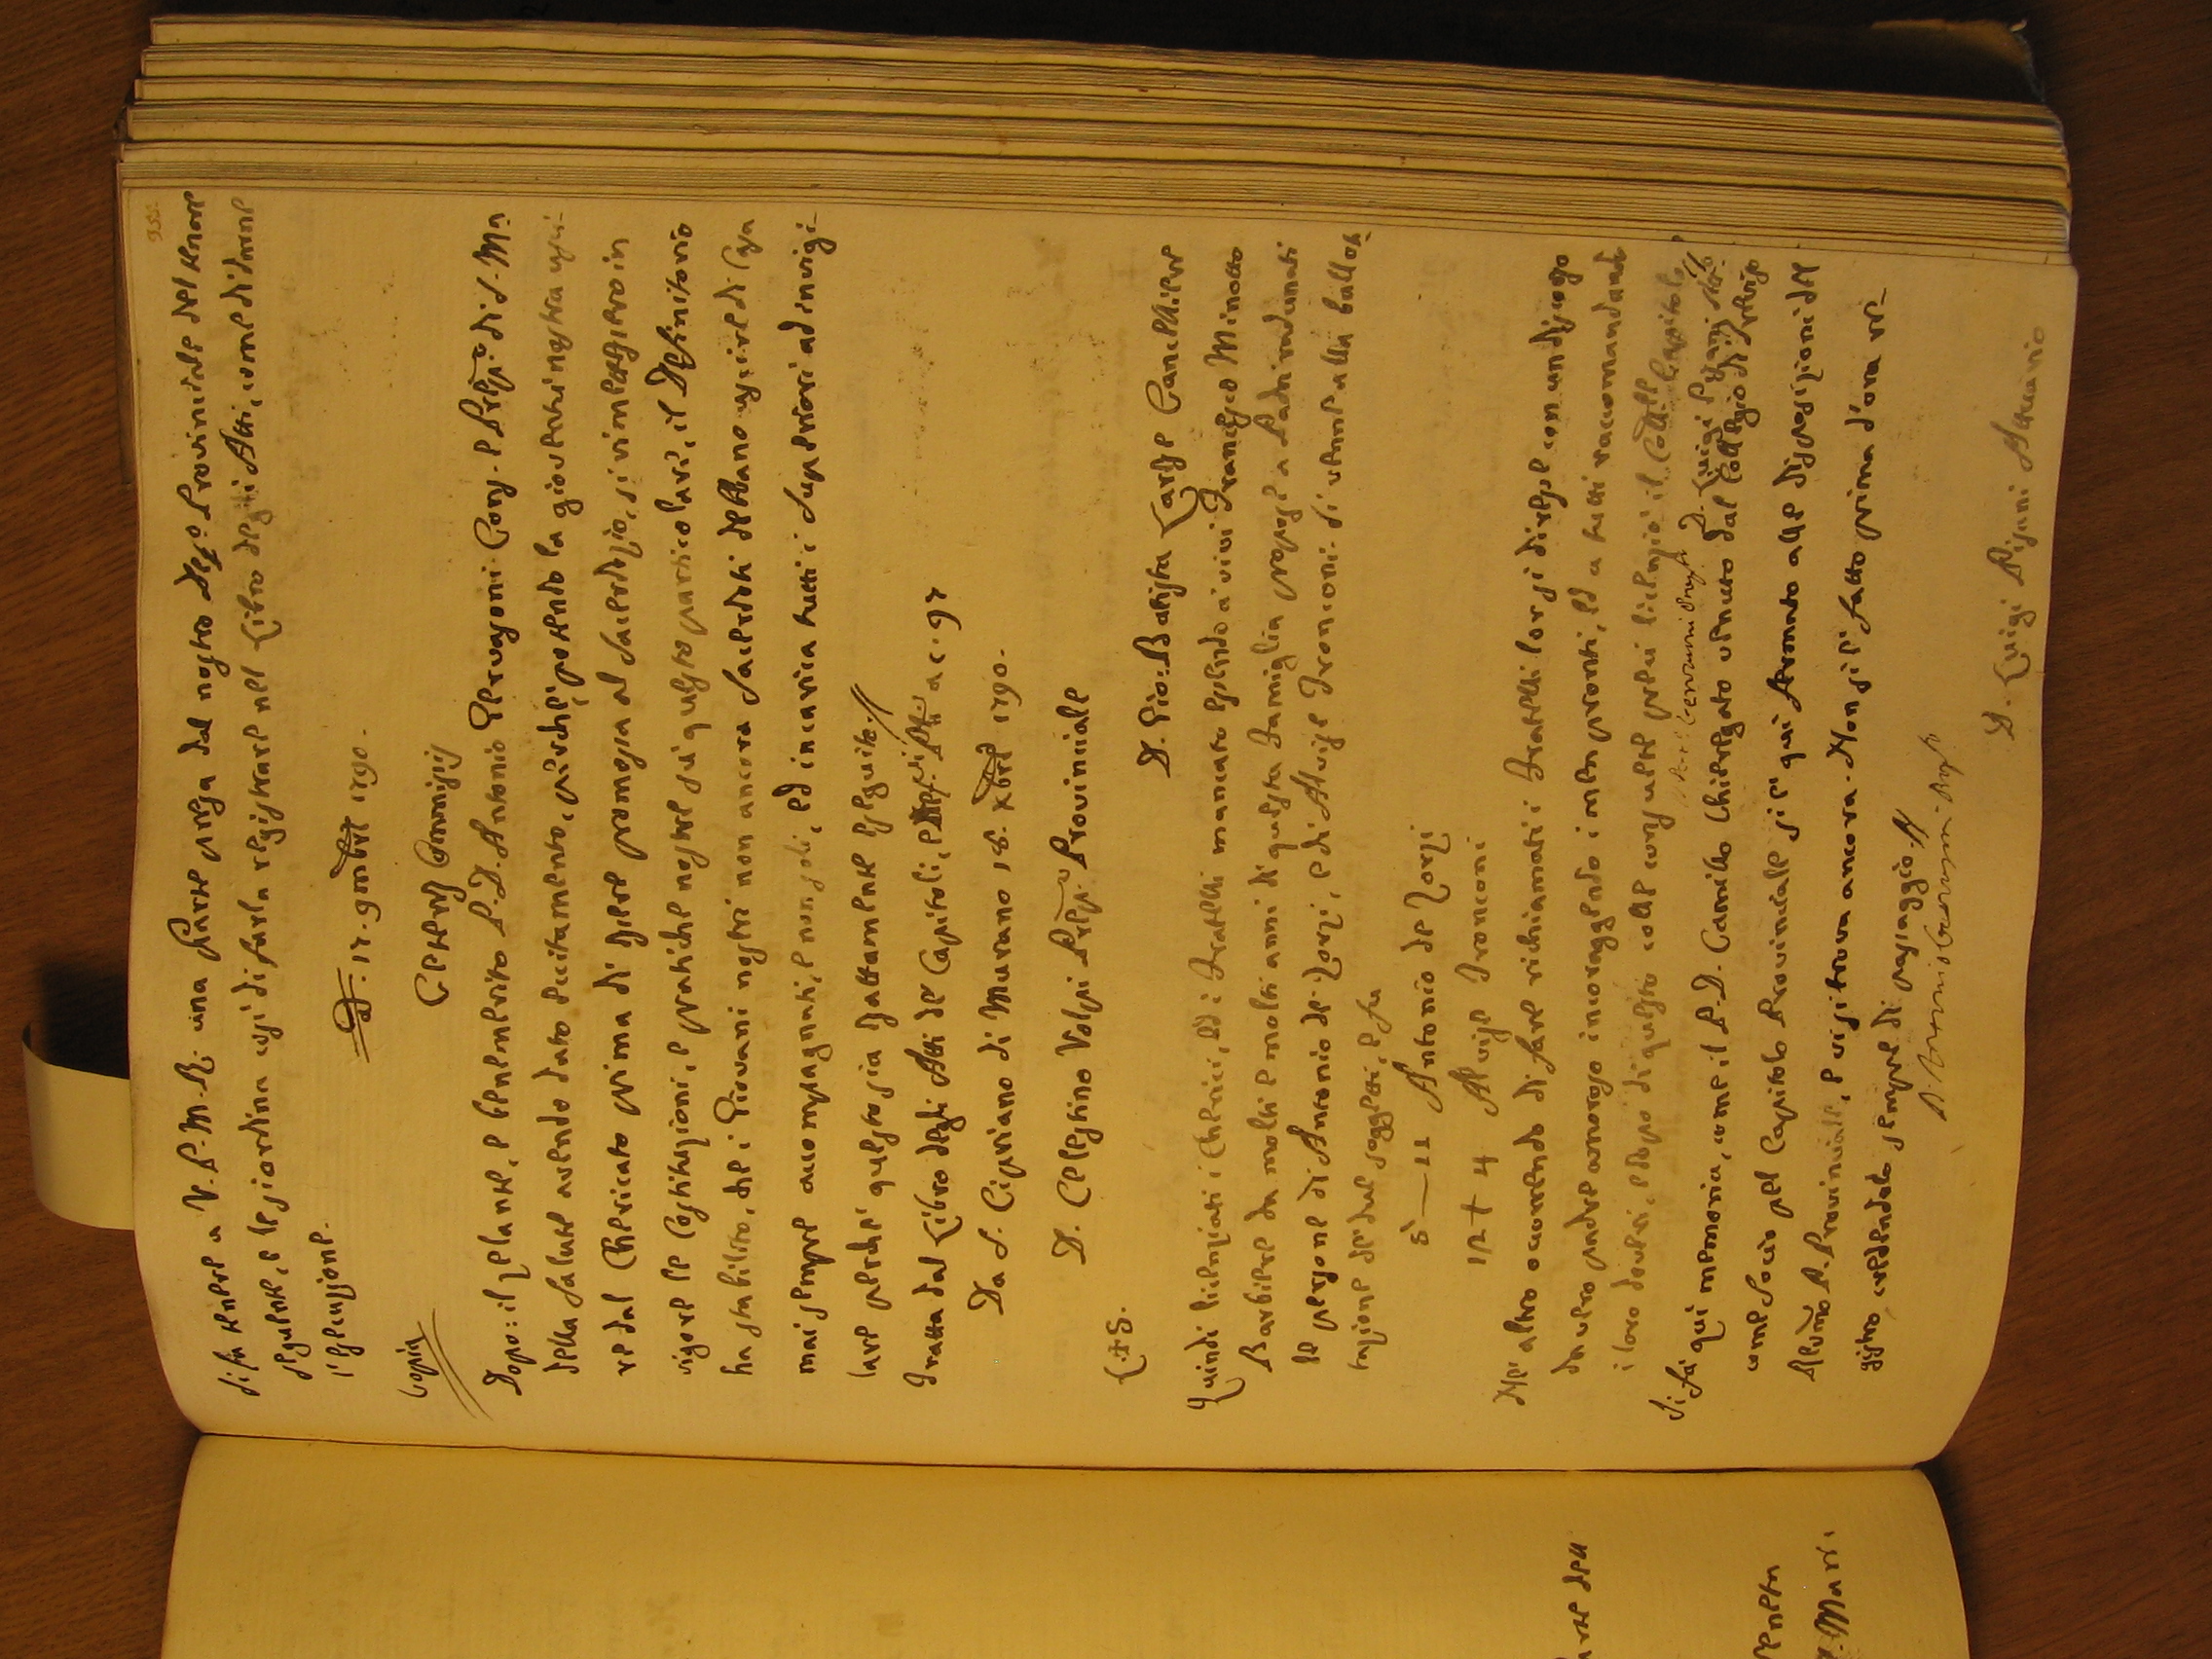 Si fa tenere a V. P. M. R. una Parte presa dal nostro Deff.o Provinciale del tenore
seguente, e le si ordina così di farla registrare nel Libro degli Atti, come di darne
l'esecuzione.
Adì: 17. 9mbre 1790.
Copia
Ceteris Omissis
Dopo: il zelante, e benemerito P. D. Antonio Cons. e Prep.o di S. Ma
della Salute avendo dato eccitamento, perchè, potendo la gioventù nostra usci-
re dal Chiericato prima di esser promossa al Sacerdozio, si rimettessero in
vigore le Costituzioni, e pratiche nostre su questo particolare, il Definitorio
ha stabilito, che i Giovani nostri non ancora Sacerdoti debbano uscire di Casa
mai sempre accompagnati, e non soli, ed incarica tutti i Superiori ad invigi-
lare perchè questo sia esattamente eseguito.//
Tratta dal Libro degli Atti de Capitoli, e a c. 97
Da S. Cipriano di Murano 18. Xbre 1790.
D. Celestino Volpi Prep.o Provinciale
(L+S.
D. Gio: Batista Carlo Cancelliere
Quindi licenziati i Chierici, ed i Fratelli mancato essendo a' vivi Francesco Minotto
Barbiere da molti e molti anni di questa Famiglia propose a Padri radunati
le persone di Antonio de Zorzi, e di Alvise Tronconi. Si venne alla ballot-
tazione de' due soggetti, e fu
5 — 11 Antonio de Zorzi
12 + 4 Alvise Tronconi
Nè altro occorrendo di fare richiamati i Fratelli lor si diresse con un discorso
da vero padre amoroso incoraggendo i men pronti, ed a tutti raccomandando
i loro doveri, e dopo di questo colle consuete preci licenziò il Coll.le Capitolo
D. Luigi Pisani Att.o
Si fa quì memoria, come il P. D. Camillo Chieregato venuto dal Collegio di Treviso
come Socio pel Capitolo Provinciale si è quì fermato alle disposizioni del
Revmo P. Provinciale, e vi si trova ancora. Non si è fatto prima d'ora re-
gistro credendolo sempre di passaggio.//
D. Luigi Pisani Attuario